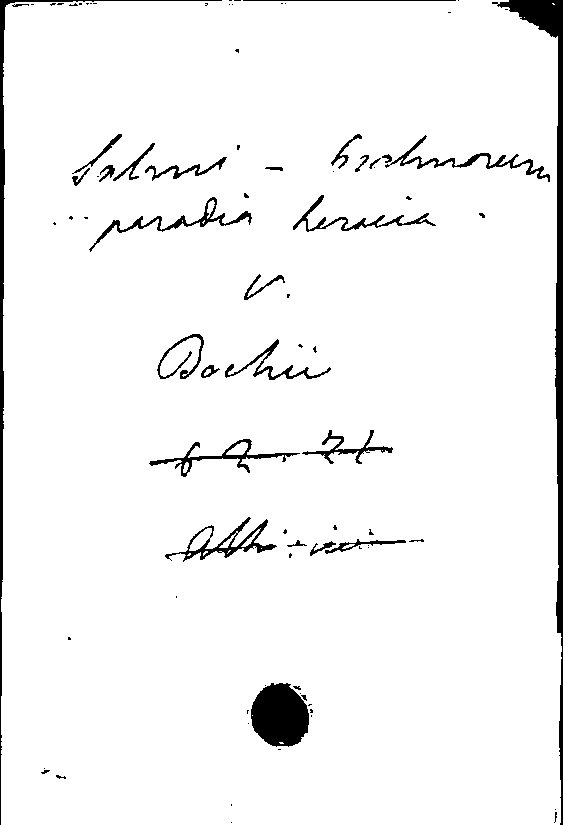 Salmi - Psalmorum
... parodia heroica.
v.
Bochii
6 2. 71